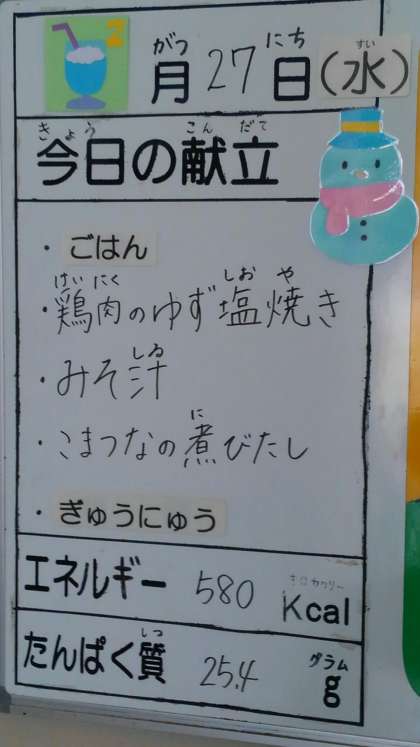 2
がつ にち すい
月 27 日 (水)
きょう こんだて
今日の献立
・ごはん
けいにく しお や
・鶏肉のゆず塩焼き
しる
・みそ汁
に
・こまつなの煮びたし
・ぎゅうにゅう
キロカロリー
エネルギー 580 Kcal
しつ グラム
たんぱく質 25.4 g